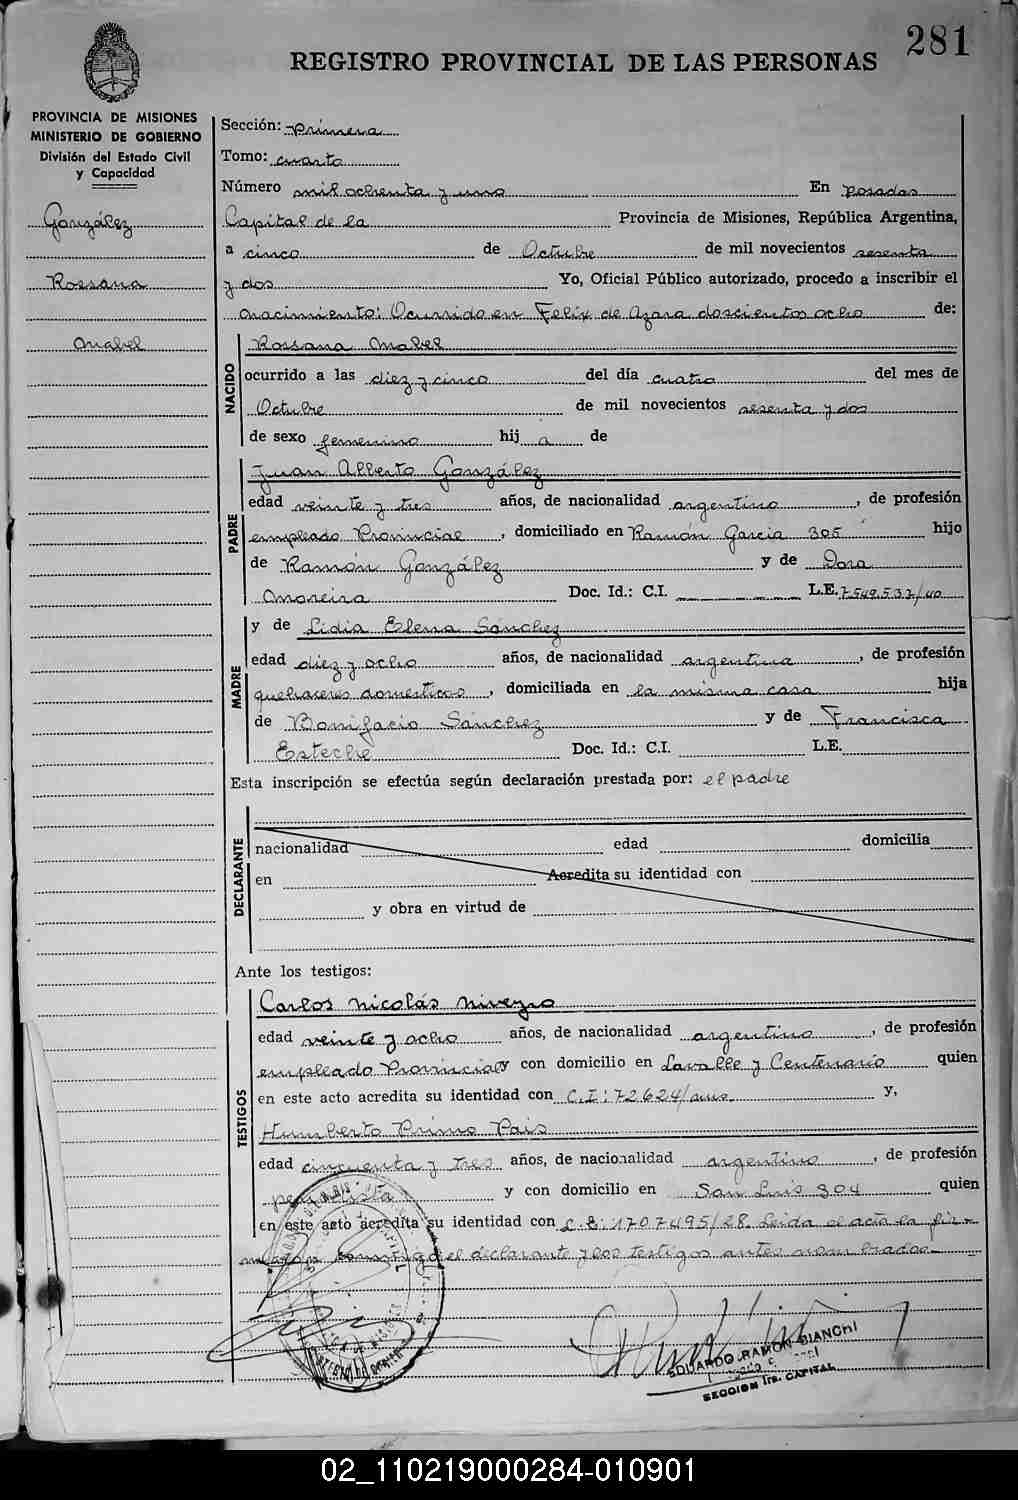 281
REGISTRO PROVINCIAL DE LAS PERSONAS
PROVINCIA DE MISIONES
MINISTERIO DE GOBIERNO
División del Estado Civil
y Capacidad
González
Rossana
Mabel
Sección: primera
Tomo: cuarto
Número mil ochenta y uno En Posadas
Capital de la Provincia de Misiones, República Argentina,
a cinco de Octubre de mil novecientos sesenta
y dos Yo, Oficial Público autorizado, procedo a inscribir el
nacimiento: Ocurrido en Felix de Azara doscientos ocho de:
NACIDO
Rossana Mabel
ocurrido a las diez y cinco del día cuatro del mes de
Octubre de mil novecientos sesenta y dos
de sexo femenino hij a de
PADRE
Juan Alberto González
edad veinte y tres años, de nacionalidad argentino, de profesión
empleado Provincial, domiciliado en Ramón Garcia 305 hijo
de Ramón González y de Dora
Moreira Doc. Id.: C.I. L.E. 7.549.537/40
MADRE
y de Lidia Elena Sánchez
edad diez y ocho años, de nacionalidad argentina, de profesión
quehaceres domésticos, domiciliada en la misma casa hija
de Bonifacio Sánchez y de Francisca
Esteche Doc. Id.: C.I. L.E.
Esta inscripción se efectúa según declaración prestada por: el padre
DECLARANTE
nacionalidad edad domicilia
en Acredita su identidad con
y obra en virtud de
Ante los testigos:
TESTIGOS
Carlos Nicolás
edad veinte y ocho años, de nacionalidad argentino, de profesión
empleado Provincial y con domicilio en Lavalle y Centenario quien
en este acto acredita su identidad con C.I: 72624/ y,
Humberto Primo Pais
edad cincuenta y tres años, de nacionalidad argentino, de profesión
y con domicilio en San Luis 304 quien
en este acto acredita su identidad con L.E: 1707495/28. Leida el acta la fir-
man el declarante y los testigos antes nombrados
EDUARDO RAMON BIANCHI
SECCION 1ra. CAPITAL
02_110219000284-010901